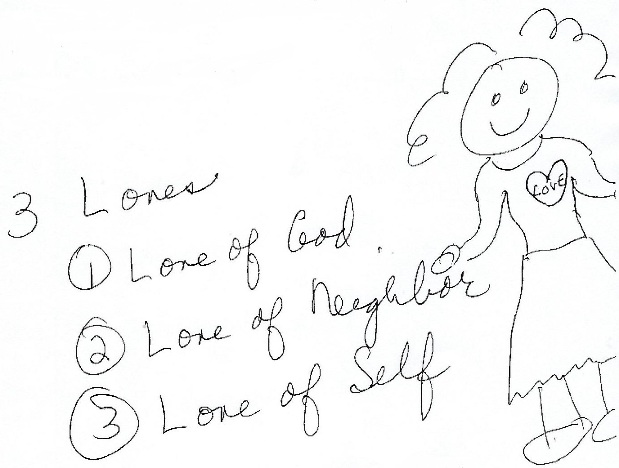 3 Loves
① Love of God.
② Love of Neighbor
③ Love of Self
LOVE